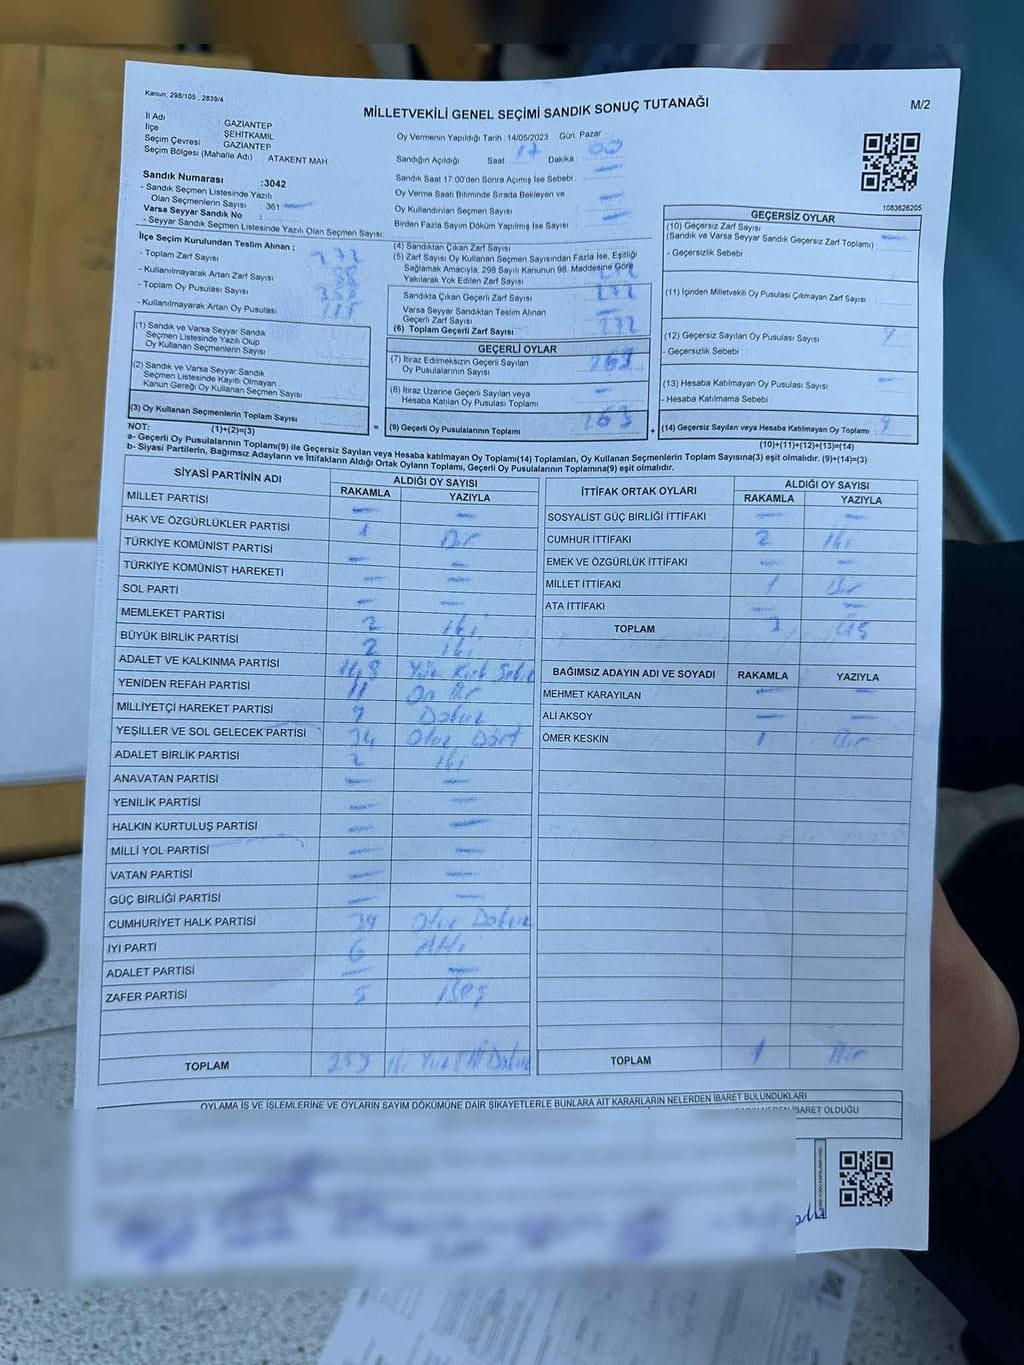 Kanun; 298/105 , 2839/4
MİLLETVEKİLİ GENEL SEÇİMİ SANDIK SONUÇ TUTANAĞI
M/2
İl Adı : GAZİANTEP
İlçe ŞEHİTKAMİL
Seçim Çevresi : GAZİANTEP
Seçim Bölgesi (Mahalle Adı) : ATAKENT MAH
Sandık Numarası :3042
- Sandık Seçmen Listesinde Yazılı
Olan Seçmenlerin Sayısı : 361
Varsa Seyyar Sandık No :
- Seyyar Sandık Seçmen Listesinde Yazılı Olan Seçmen Sayısı:
Oy Vermenin Yapıldığı Tarih : 14/05/2023 Gün: Pazar
Sandığın Açıldığı Saat: 17 Dakika : 00
Sandık Saat 17:00'den Sonra Açımış İse Sebebi :
Oy Verme Saati Bitiminde Sırada Bekleyen ve
Oy Kullandırılan Seçmen Sayısı
Birden Fazla Sayım Döküm Yapılmış İse Sayısı :
1083626205
İlçe Seçim Kurulundan Teslim Alınan ;
- Toplam Zarf Sayısı
- Kullanılmayarak Artan Zarf Sayısı
- Toplam Oy Pusulası Sayısı
- Kullanılmayarak Artan Oy Pusulası
(1) Sandık ve Varsa Seyyar Sandık
Seçmen Listesinde Yazılı Olup
Oy Kullanan Seçmenlerin Sayısı
(2) Sandık ve Varsa Seyyar Sandık
Seçmen Listesinde Kayıtlı Olmayan
Kanun Gereği Oy Kullanan Seçmen Sayısı
(3) Oy Kullanan Seçmenlerin Toplam Sayısı
(4) Sandıktan Çıkan Zarf Sayısı
(5) Zarf Sayısı Oy Kullanan Seçmen Sayısından Fazla İse, Eşitliği
Sağlamak Amacıyla, 298 Sayılı Kanunun 98. Maddesine Göre
Yakılarak Yok Edilen Zarf Sayısı
Sandıkta Çıkan Geçerli Zarf Sayısı 272
Varsa Seyyar Sandıktan Teslim Alınan
Geçerli Zarf Sayısı
(6) Toplam Geçerli Zarf Sayısı 272
GEÇERLİ OYLAR
(7) İtiraz Edilmeksizin Geçerli Sayılan
Oy Pusulalarının Sayısı 263
(8) İtiraz Üzerine Geçerli Sayılan veya
Hesaba Katılan Oy Pusulası Toplamı
= (9) Geçerli Oy Pusulalarının Toplamı 263
GEÇERSİZ OYLAR
(10) Geçersiz Zarf Sayısı
(Sandık ve Varsa Seyyar Sandık Geçersiz Zarf Toplamı) :
- Geçersizlik Sebebi :
(11) İçinden Milletvekili Oy Pusulası Çıkmayan Zarf Sayısı
(12) Geçersiz Sayılan Oy Pusulası Sayısı 9
- Geçersizlik Sebebi :
(13) Hesaba Katılmayan Oy Pusulası Sayısı
- Hesaba Katılmama Sebebi :
+ (14) Geçersiz Sayılan veya Hesaba Katılmayan Oy Toplamı 9
NOT: (1)+(2)=(3)
(10)+(11)+(12)+(13)=(14)
a- Geçerli Oy Pusulalarının Toplamı(9) ile Geçersiz Sayılan veya Hesaba katılmayan Oy Toplamı(14) Toplamları, Oy Kullanan Seçmenlerin Toplam Sayısına(3) eşit olmalıdır. (9)+(14)=(3)
b- Siyasi Partilerin, Bağımsız Adayların ve İttifakların Aldığı Ortak Oyların Toplamı, Geçerli Oy Pusulalarının Toplamına(9) eşit olmalıdır.
SİYASİ PARTİNİN ADI ALDIĞI OY SAYISI
RAKAMLA YAZIYLA
MİLLET PARTİSI
HAK VE ÖZGÜRLÜKLER PARTİSİ 1 Bir
TÜRKİYE KOMÜNİST PARTİSİ
TÜRKİYE KOMÜNİST HAREKETİ
SOL PARTİ
MEMLEKET PARTİSİ 2 İki
BÜYÜK BİRLİK PARTİSİ 2 İki
ADALET VE KALKINMA PARTİSİ 148 Yüz Kırk Sekiz
YENİDEN REFAH PARTİSİ 11 On Bir
MİLLİYETÇİ HAREKET PARTİSİ 9 Dokuz
YEŞİLLER VE SOL GELECEK PARTİSİ 34 Otuz Dört
ADALET BİRLİK PARTİSİ 2 İki
ANAVATAN PARTİSİ
YENİLİK PARTİSİ
HALKIN KURTULUŞ PARTİSİ
MİLLİ YOL PARTİSİ
VATAN PARTİSİ
GÜÇ BİRLİĞİ PARTİSİ
CUMHURİYET HALK PARTİSİ 39 Otuz Dokuz
İYİ PARTİ 6 Altı
ADALET PARTİSİ
ZAFER PARTİSİ 5 Beş
TOPLAM 259 İki Yüz Elli Dokuz
İTTİFAK ORTAK OYLARI ALDIĞI OY SAYISI
RAKAMLA YAZIYLA
SOSYALİST GÜÇ BİRLİĞİ İTTİFAKI
CUMHUR İTTİFAKI 2 İki
EMEK VE ÖZGÜRLÜK İTTİFAKI
MİLLET İTTİFAKI 1 Bir
ATA İTTİFAKI
TOPLAM 3 Üç
BAĞIMSIZ ADAYIN ADI VE SOYADI RAKAMLA YAZIYLA
MEHMET KARAYILAN
ALİ AKSOY
ÖMER KESKİN 1 Bir
TOPLAM 1 Bir
OYLAMA İŞ VE İŞLEMLERİNE VE OYLARIN SAYIM DÖKÜMÜNE DAİR ŞİKAYETLERLE BUNLARA AİT KARARLARIN NELERDEN İBARET BULUNDUKLARI
İBARET OLDUĞU